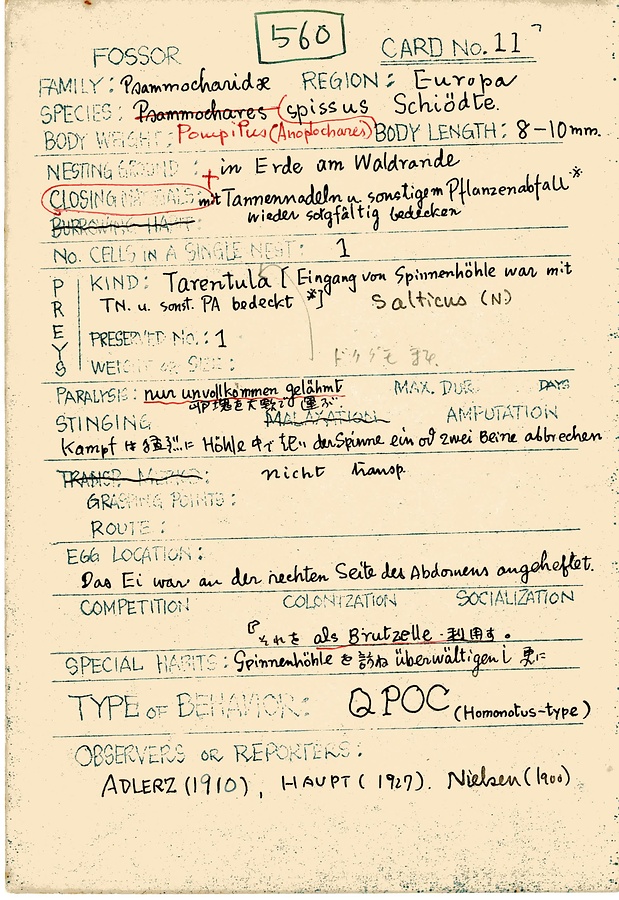 560
FOSSOR
CARD No. 11
FAMILY: Psammocharidæ REGION: Europa
SPECIES: Psammochares (spissus Schiödte.
BODY WEIGHT: Pompilus (Anoplochares) BODY LENGTH: 8–10mm.
NESTING GROUND: in Erde am Waldrande
CLOSING MATERIALS mit Tannennadeln u. sonstigem Pflanzenabfall*
wieder sorgfältig bedecken
BURROWING HABIT:
No. CELLS IN A SINGLE NEST: 1
PREYS
KIND: Tarentula [Eingang von Spinnenhöhle war mit
TN. u. sonst. PA bedeckt *] Salticus (N)
PRESERVED No.: 1
WEIGHT OR SIZE:
PARALYSIS: nur unvollkommen gelähmt MAX. DUR. DAYS
STINGING MALAXATION AMPUTATION
Kampf は Höhle 中で der Spinne ein od zwei Beine abbrechen
TRANSP. METHOD: nicht transp.
GRASPING POINTS:
ROUTE:
EGG LOCATION:
Das Ei war an der rechten Seite des Abdomens angeheftet.
COMPETITION COLONIZATION SOCIALIZATION
それを als Brutzelle 利用す。
SPECIAL HABITS: Spinnenhöhle を訪ね überwältigen し 更に
TYPE OF BEHAVIOR: QPOC (Homonotus-type)
OBSERVERS OR REPORTERS:
ADLERZ (1910), HAUPT (1927). Nielsen (1900)